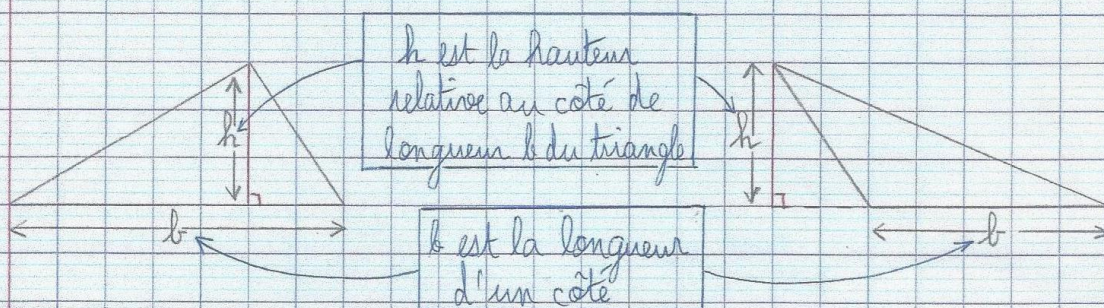 h est la hauteur
relative au côté de
longueur b du triangle
h
h
b
b
b est la longueur
d'un côté